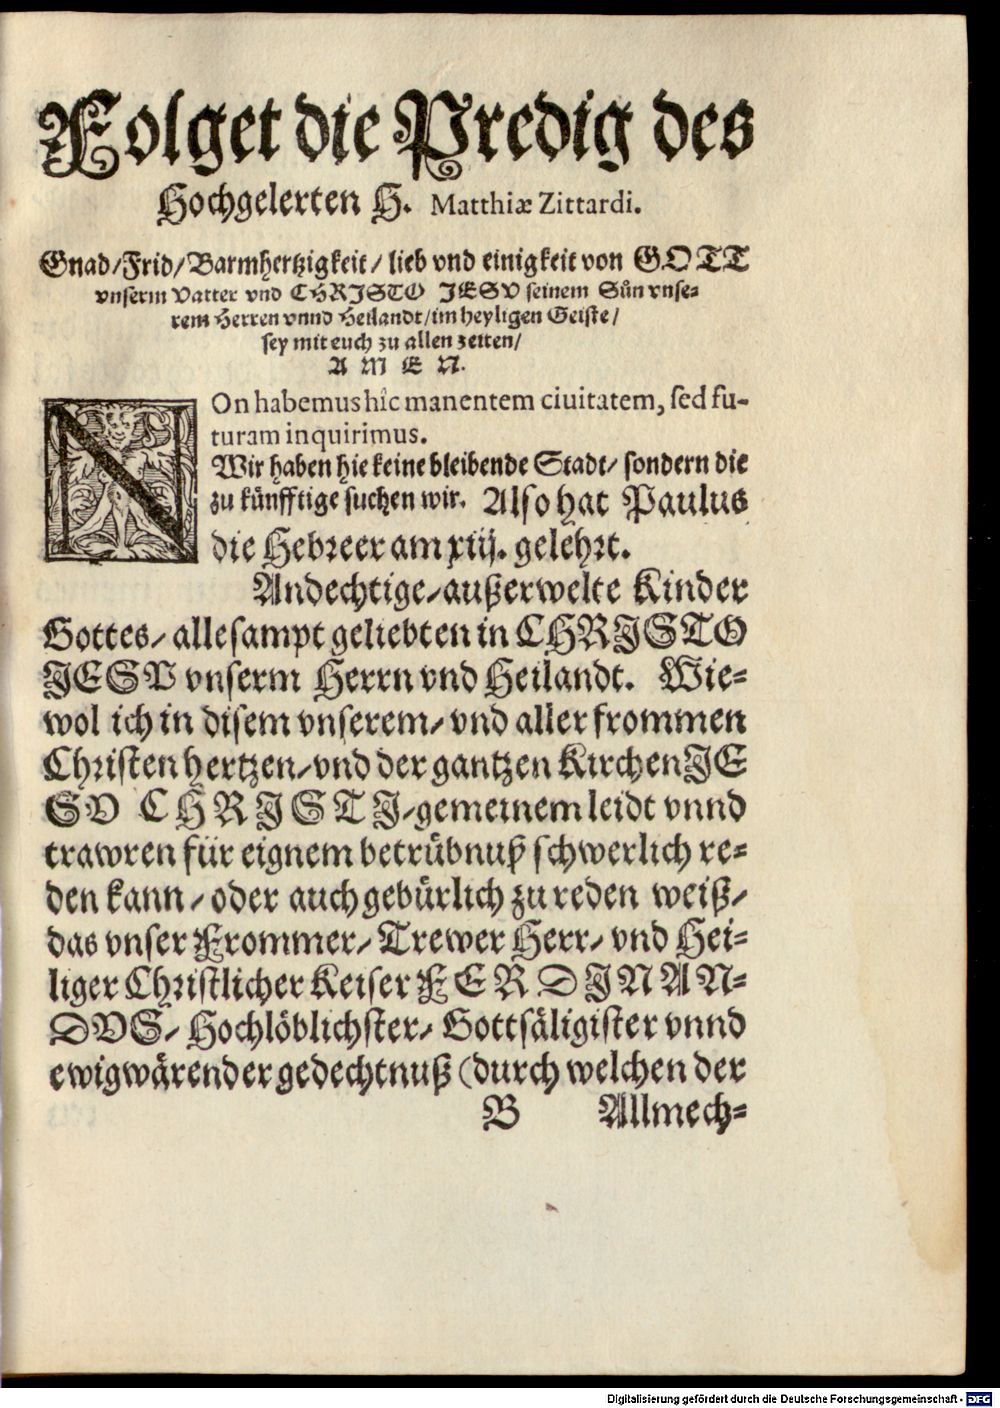 Folget die Predig des
Hochgelerten H. Matthiæ Zittardi.
Gnad/Frid/Barmhertzigkeit/ lieb vnd einigkeit von GOTT
vnserm Vatter vnd CHRISTO JESV seinem Sůn vnse-
rem Herren vnnd Heilandt/im heyligen Geiste/
sey mit euch zu allen zeiten/
A M E N.
NOn habemus hîc manentem ciuitatem, sed fu-
turam inquirimus.
Wir haben hie keine bleibende Stadt/ sondern die
zu künfftige suchen wir. Also hat Paulus
die Hebreer am xiij. gelehrt.
Andechtige/außerwelte Kinder
Gottes/ allesampt geliebten in CHRISTO
JESV vnserm Herrn vnd Heilandt. Wie-
wol ich in disem vnserem/ vnd aller frommen
Christen hertzen/vnd der gantzen Kirchen JE
SV CHRISTI/gemeinem leidt vnnd
trawren für eignem betrübnuß schwerlich re-
den kann/ oder auch gebürlich zu reden weiß/
das vnser Frommer/ Trewer Herr/ vnd Hei-
liger Christlicher Keiser FERDINAN-
DVS/ Hochlöblichster/ Gottsäligister vnnd
ewigwärender gedechtnuß (durch welchen der
B Allmech-
Digitalisierung gefördert durch die Deutsche Forschungsgemeinschaft - DFG